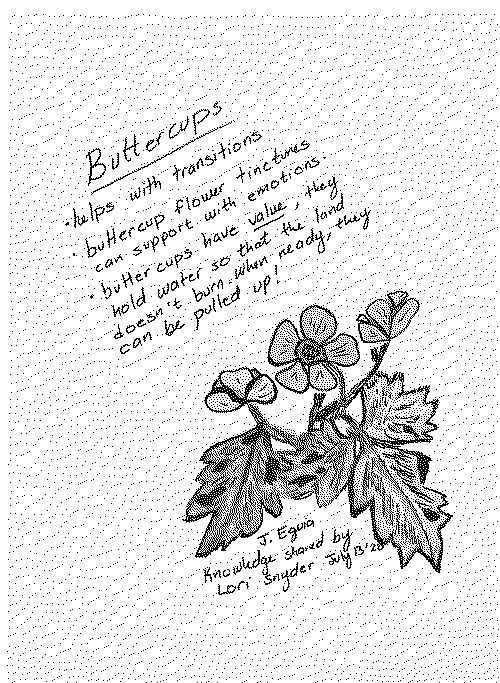 Buttercups
• helps with transitions
• buttercup flower tinctures
can support with emotions.
• buttercups have value, they
hold water so that the land
doesn't burn. When ready, they
can be pulled up!
J. Eguia
Knowledge shared by
Lori Snyder July 13'20